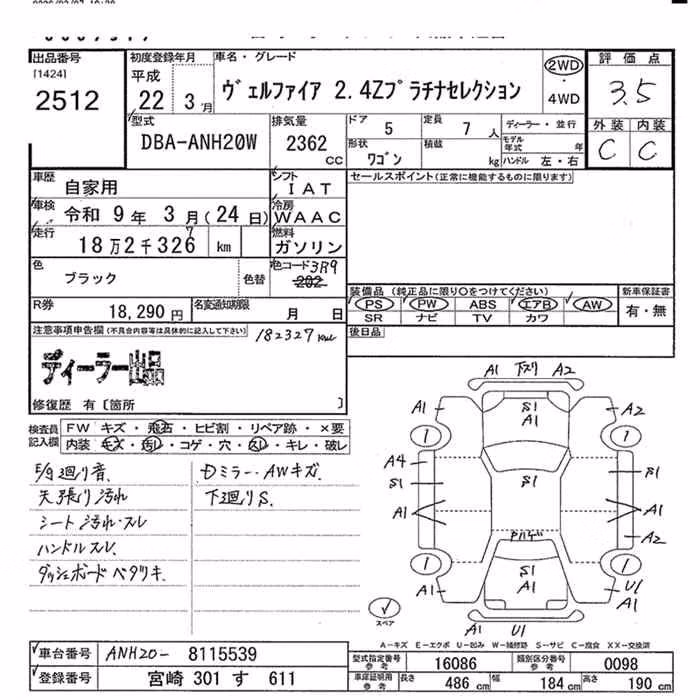 出品番号
[1424]
2512
初度登録年月
平成
22 3月
車名・グレード
ヴェルファイア 2.4Zプラチナセレクション
2WD
4WD
評価点
3.5
外装 内装
C C
型式
DBA-ANH20W
排気量
2362
CC
ドア 5
定員 7 人
形状 ワゴン
積載 kg
ディーラー・並行
モデル年式 年
ハンドル 左・右
車歴 自家用
シフト IAT
車検 令和 9年 3月(24日)
冷房 WAAC
走行 18万2千326 km
7
燃料 ガソリン
色 ブラック
色替
色コード 3R9
202
R券 18,290円
名変通知期限 月 日
セールスポイント(正常に機能するものに限ります)
装備品 (純正品に限り○をつけてください)
PS PW ABS エアB AW
SR ナビ TV カワ
新車保証書
有・無
後日品
注意事項申告欄(不具合内容等は具体的に記入して下さい)
182327km
ディーラー出品
修復歴 有〔箇所 〕
検査員記入欄
FW キズ・飛石・ヒビ割・リペア跡・×要
内装 キズ・汚レ・コゲ・穴・スレ・キレ・破レ
E/g廻り音.
天張り汚れ
シート汚れ・スレ
ハンドルスレ.
ダッシュボードベタツキ
Dミラー・AWキズ.
下廻りS.
A1 下スリ A2
A1 S1 A1 A2
1 1
A4 S1 S1 S1
A1 A1
A2
Pハゲ
1 1
S1
A1 A1 A1 U1
A1 U1
スペア
A-キズ E-エクボ U-凹み W-補修跡 S-サビ C-腐食 XX-交換済
車台番号 ANH20- 8115539
登録番号 宮崎 301 す 611
型式指定番号 参考 16086
類別区分番号 参考 0098
車庫証明用 参考 長さ 486 cm 幅 184 cm 高さ 190 cm